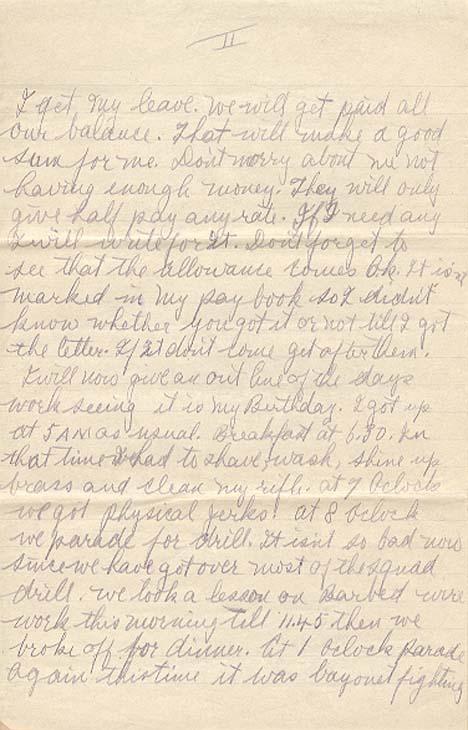 II
I get my leave. We will get paid all
our balance. That will make a good
sum for me. Dont worry about me not
having enough money. They will only
give half pay any rate. If I need any
I will write for It. Don't forget to
see that the allowance comes Ok. It isn't
marked in my pay book so I didn't
know whether you got it or not till I got
the letter. If It don't come get after them.
I will now give an out line of the days
work seeing it is my Birthday. I got up
at 5 AM as usual. Breakfast at 6.30. In
that time I had to shave, wash, shine up
brass and clean my rifle. at 7 Oclock
we got physical jerks. at 8 Oclock
we parade for drill. It isnt so bad now
since we have got over most of the squad
drill. we took a lesson on Barbed wire
work this morning till 11.45 then we
broke off for dinner. At 1 oclock parade
again this time it was bayonet fighting